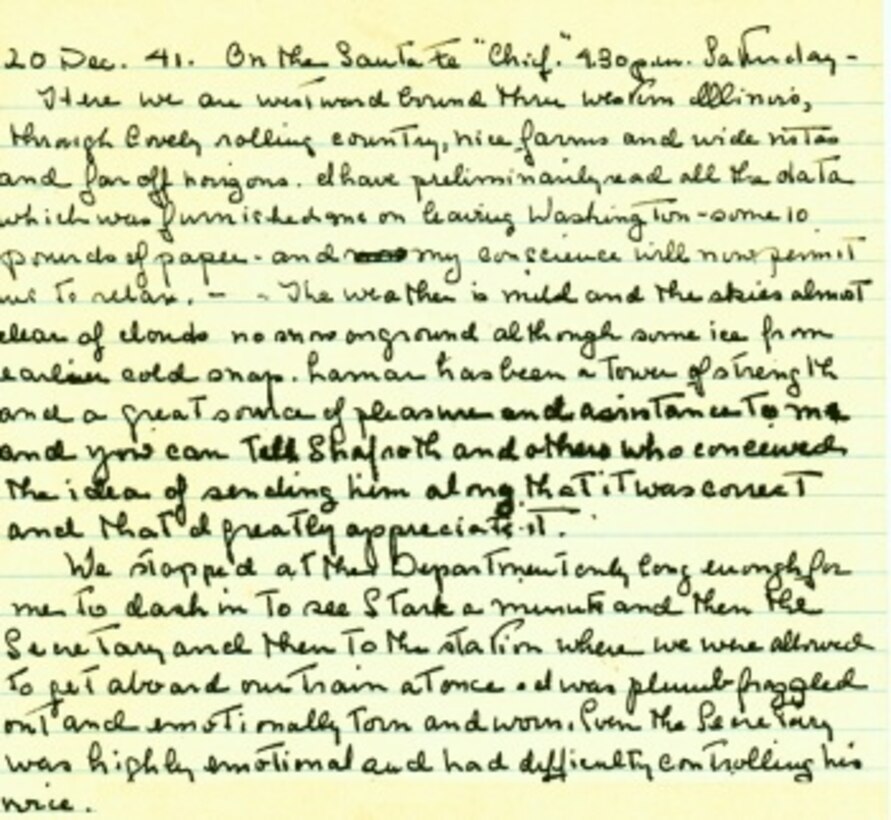 20 Dec. 41. On the Santa Fe "Chief." 4.30 p.m. Saturday -
Here we are westward bound thru western Illinois,
through lovely rolling country, nice farms and wide vistas
and far off horizons. I have preliminarily read all the data
which was furnished me on leaving Washington - some 10
pounds of paper - and my conscience will now permit
me to relax. - - The weather is mild and the skies almost
clear of clouds no snow on ground although some ice from
earlier cold snap. Lamar has been a tower of strength
and a great source of pleasure and assistance to me
and you can tell Shafroth and others who conceived
the idea of sending him along that it was correct
and that I greatly appreciate it.
We stopped at the Department only long enough for
me to dash in to see Stark a minute and then the
Secretary and then to the station where we were allowed
to get aboard our train at once. I was plumb frazzled
out and emotionally torn and worn. Even the Secretary
was highly emotional and had difficulty controlling his
voice.